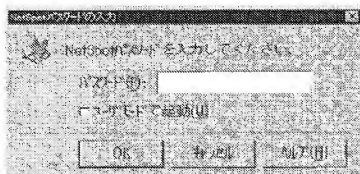 NetSpotパスワードの入力
NetSpotパスワードを入力してください。
パスワード(P):
ユーザモードで起動(U)
OK キャンセル ヘルプ(H)